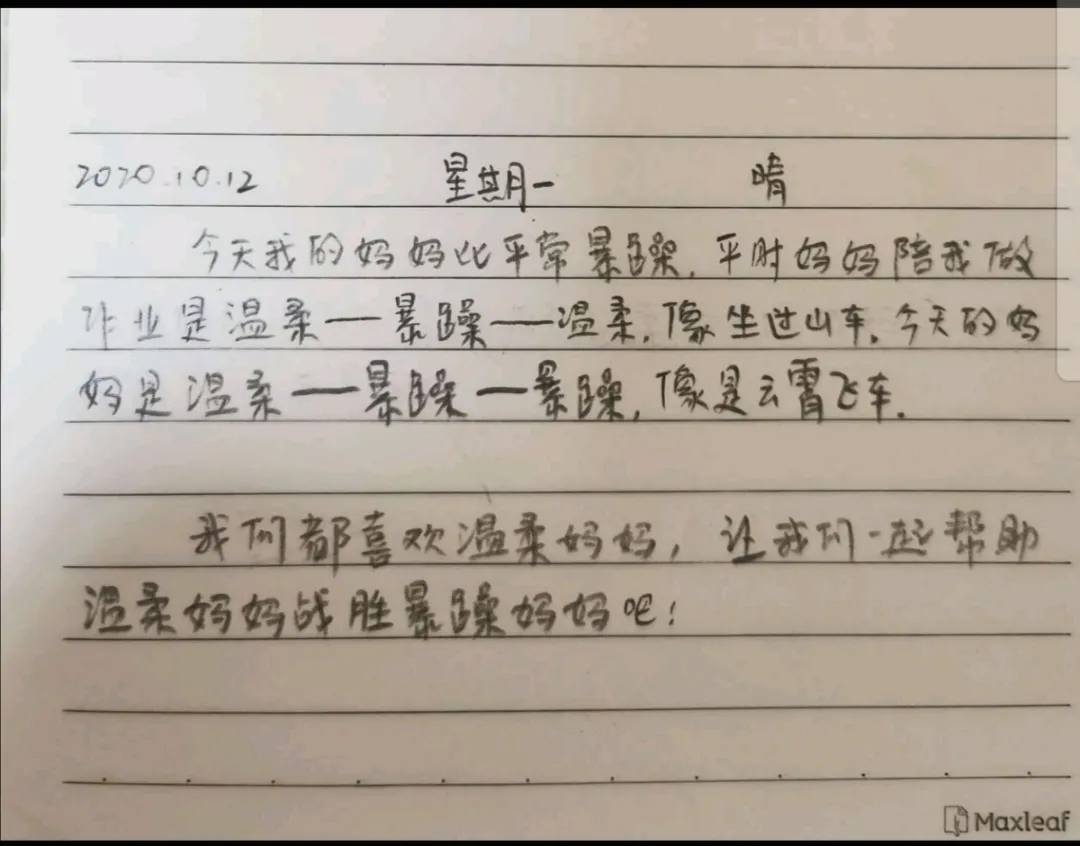 2020.10.12 星期一 晴
今天我的妈妈比平常暴躁,平时妈妈陪我做
作业是温柔——暴躁——温柔,像坐过山车。今天的妈
妈是温柔——暴躁——暴躁,像是云霄飞车。
我们都喜欢温柔妈妈,让我们一起帮助
温柔妈妈战胜暴躁妈妈吧!
Maxleaf